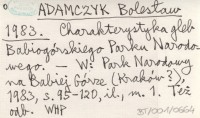 ADAMCZYK Bolesław
1983. Charakterystyka gleb
Babiogórskiego Parku Narodo-
wego. — W: Park Narodowy
na Babiej Górze (Kraków?),
1983, s. 95-120, il., m. 1. Też
odb. WHP
BT/001/0664